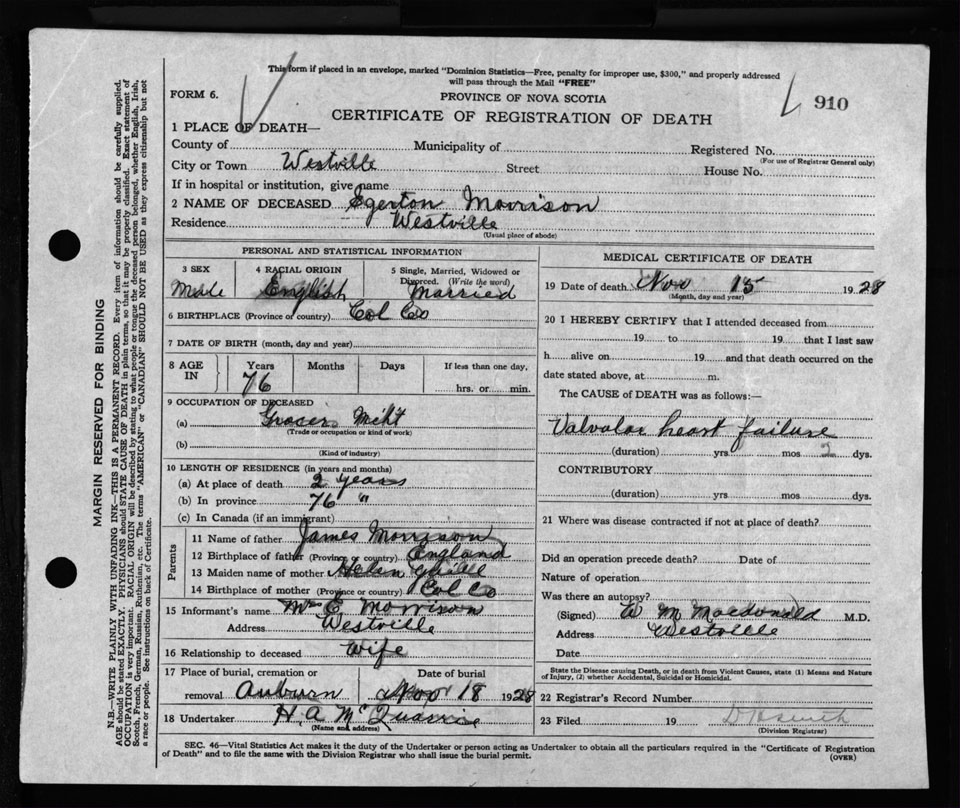 This form if placed in an envelope, marked "Dominion Statistics—Free, penalty for improper use, $300," and properly addressed
will pass through the Mail "FREE"
FORM 6.
PROVINCE OF NOVA SCOTIA
910
CERTIFICATE OF REGISTRATION OF DEATH
1 PLACE OF DEATH—
County of Municipality of Registered No.
(For use of Registrar General only)
City or Town Westville Street House No.
If in hospital or institution, give name
2 NAME OF DECEASED Egerton Morrison
Residence Westville
(Usual place of abode)
PERSONAL AND STATISTICAL INFORMATION
3 SEX 4 RACIAL ORIGIN 5 Single, Married, Widowed or
Divorced. (Write the word)
Male English Married
6 BIRTHPLACE (Province or country) Col Co
7 DATE OF BIRTH (month, day and year)
8 AGE IN Years Months Days If less than one day,
76 hrs. or min.
9 OCCUPATION OF DECEASED
(a) Grocer Mcht
(Trade or occupation or kind of work)
(b)
(Kind of industry)
10 LENGTH OF RESIDENCE (in years and months)
(a) At place of death 2 years
(b) In province 76 "
(c) In Canada (if an immigrant)
Parents
11 Name of father James Morrison
12 Birthplace of father (Province or country) England
13 Maiden name of mother Helen
14 Birthplace of mother (Province or country) Col Co
15 Informant's name Mrs E Morrison
Address Westville
16 Relationship to deceased Wife
17 Place of burial, cremation or Date of burial
removal Auburn Nov 18 1928
18 Undertaker H. A McQuarrie
(Name and address)
MEDICAL CERTIFICATE OF DEATH
19 Date of death Nov 15 1928
(Month, day and year)
20 I HEREBY CERTIFY that I attended deceased from
19 to 19 that I last saw
h alive on 19 and that death occurred on the
date stated above, at m.
The CAUSE of DEATH was as follows:—
Valvular heart failure
(duration) yrs mos 2 dys.
CONTRIBUTORY
(duration) yrs mos. dys.
21 Where was disease contracted if not at place of death?
Did an operation precede death? Date of
Nature of operation
Was there an autopsy?
(Signed) W M Macdonald M.D.
Address Westville
Date
State the Disease causing Death, or in death from Violent Causes, state (1) Means and Nature
of Injury, (2) whether Accidental, Suicidal or Homicidal.
22 Registrar's Record Number
23 Filed 19 Smith
(Division Registrar)
SEC. 46—Vital Statistics Act makes it the duty of the Undertaker or person acting as Undertaker to obtain all the particulars required in the "Certificate of Registration
of Death" and to file the same with the Division Registrar who shall issue the burial permit.
(OVER)
MARGIN RESERVED FOR BINDING
N.B.—WRITE PLAINLY WITH UNFADING INK—THIS IS A PERMANENT RECORD. Every item of information should be carefully supplied.
AGE should be stated EXACTLY. PHYSICIANS should STATE CAUSE OF DEATH in plain terms, so that it may be properly classified. Exact statement of
OCCUPATION is very important. RACIAL ORIGIN will be described by stating to what people or tongue the deceased person belonged, whether English, Irish,
Scotch, French, German, Russian, Ruthenian, etc. The terms "AMERICAN" or "CANADIAN" SHOULD NOT BE USED as they express citizenship but not
a race or people. See instructions on back of Certificate.